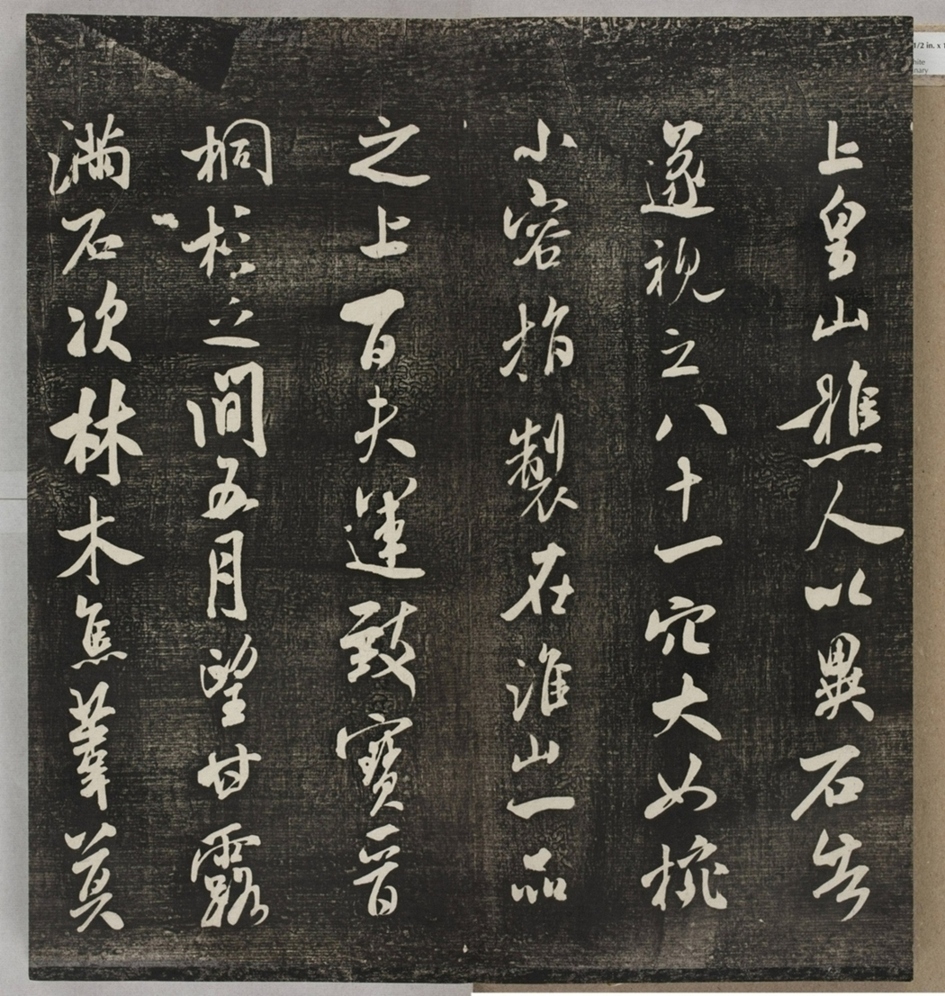 上皇山樵人以異石告
遂視之八十一穴大如椀
小容指製在淮山一品
之上百夫運致寶晉
桐杉之間五月望甘露
滿石次林木焦葦莫
1/2 in. x 1